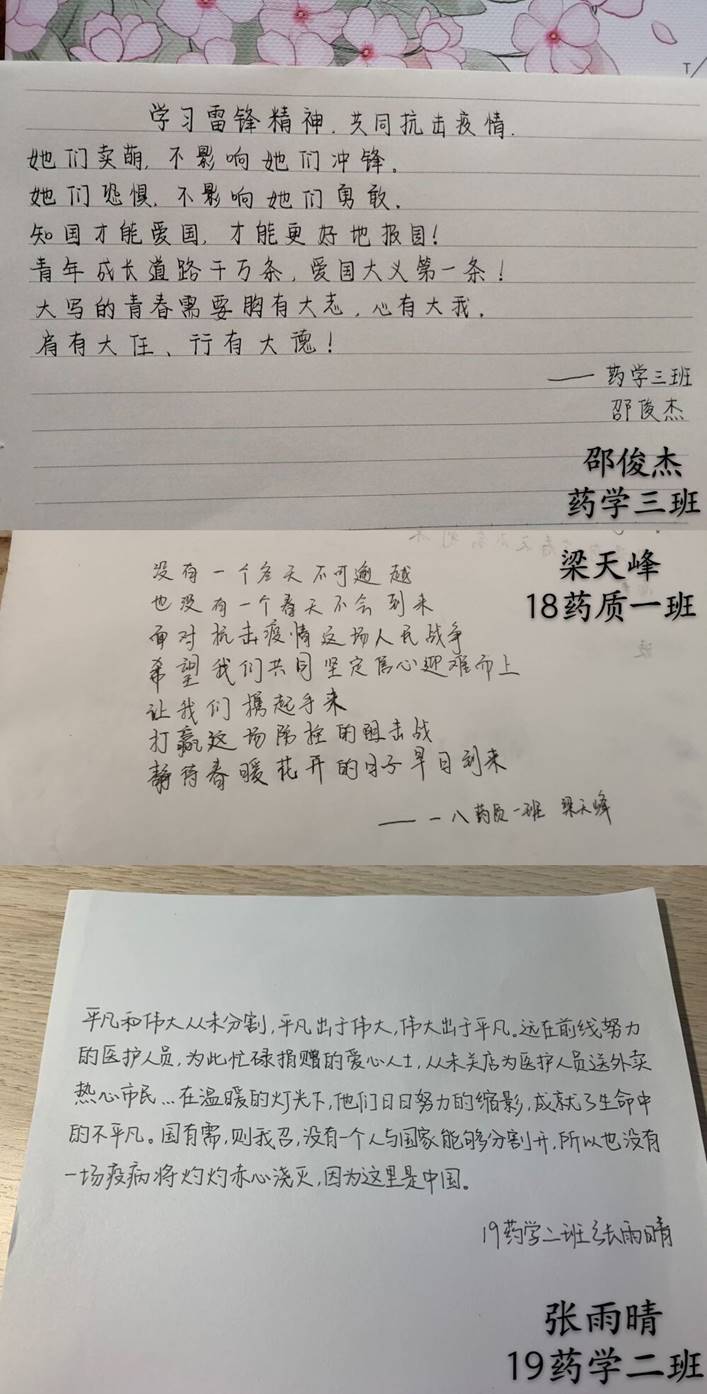 学习雷锋精神.共同抗击疫情.
她们卖萌,不影响她们冲锋。
她们恐惧.不影响她们勇敢.
知国才能爱国,才能更好地报国!
青年成长道路千万条,爱国大义第一条!
大写的青春需要胸有大志,心有大我,
肩有大任、行有大德!
——药学三班
邵俊杰
邵俊杰
药学三班
没有一个冬天不可逾越
也没有一个春天不会到来
面对抗击疫情这场人民战争
希望我们共同坚定信心迎难而上
让我们携起手来
打赢这场防控的阻击战
静待春暖花开的日子早日到来
——一八药质一班 梁天峰
梁天峰
18药质一班
平凡和伟大从未分割,平凡出于伟大,伟大出于平凡。远在前线努力
的医护人员,为此忙碌捐赠的爱心人士,从未关店为医护人员送外卖
热心市民…在温暖的灯光下,他们日日努力的缩影,成就了生命中
的不平凡。国有需,则我召,没有一个人与国家能够分割开,所以也没有
一场疫病将灼灼赤心浇灭,因为这里是中国。
19药学二班张雨晴
张雨晴
19药学二班